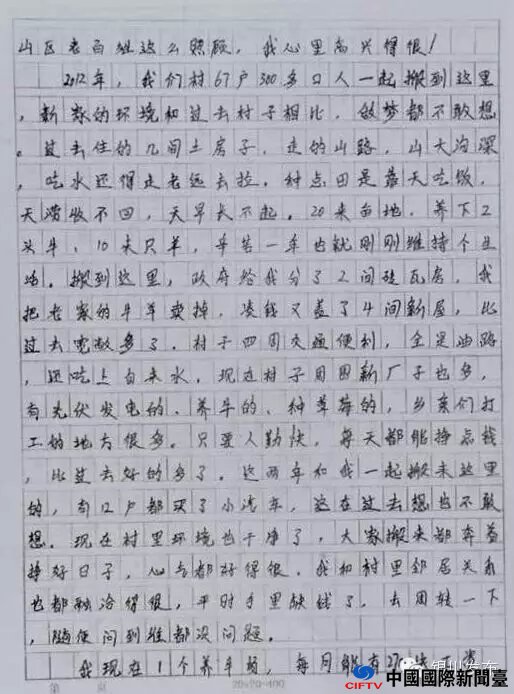 山区老百姓这么照顾，我心里高兴得很！
2012年，我们村67户300多口人一起搬到这里
，新家的环境和过去村子相比，做梦都不敢想
。过去住的几间土房子，走的山路，山大沟深
，吃水还得走老远去拉。种点田是靠天吃饭，
天涝收不回，天旱长不起。20来亩地，养下2
头牛、10来只羊，辛苦一年也就刚刚维持个生
活。搬到这里，政府给我分了2间砖瓦房，我
把老家的牛羊卖掉，凑钱又盖了4间新屋，比
过去宽敞多了。村子四周交通便利，全是油路
，还吃上自来水。现在村子周围新厂子也多，
有光伏发电的、养牛的、种草莓的，乡亲们打
工的地方很多。只要人勤快，每天都能挣点钱
，比过去好的多了。这两年和我一起搬来这里
的，有12户都买了小汽车，这在过去想也不敢
想。现在村里环境也干净了，大家搬来都奔着
挣好日子，心气都好得很。我和村里邻居关系
也都融洽得很，平时手里缺钱了，去周转一下
，随便问到谁都没问题。
我现在1个养牛场，每月能有27
第 页
20×20=400
银川发布
CIFTV 中國國際新聞臺